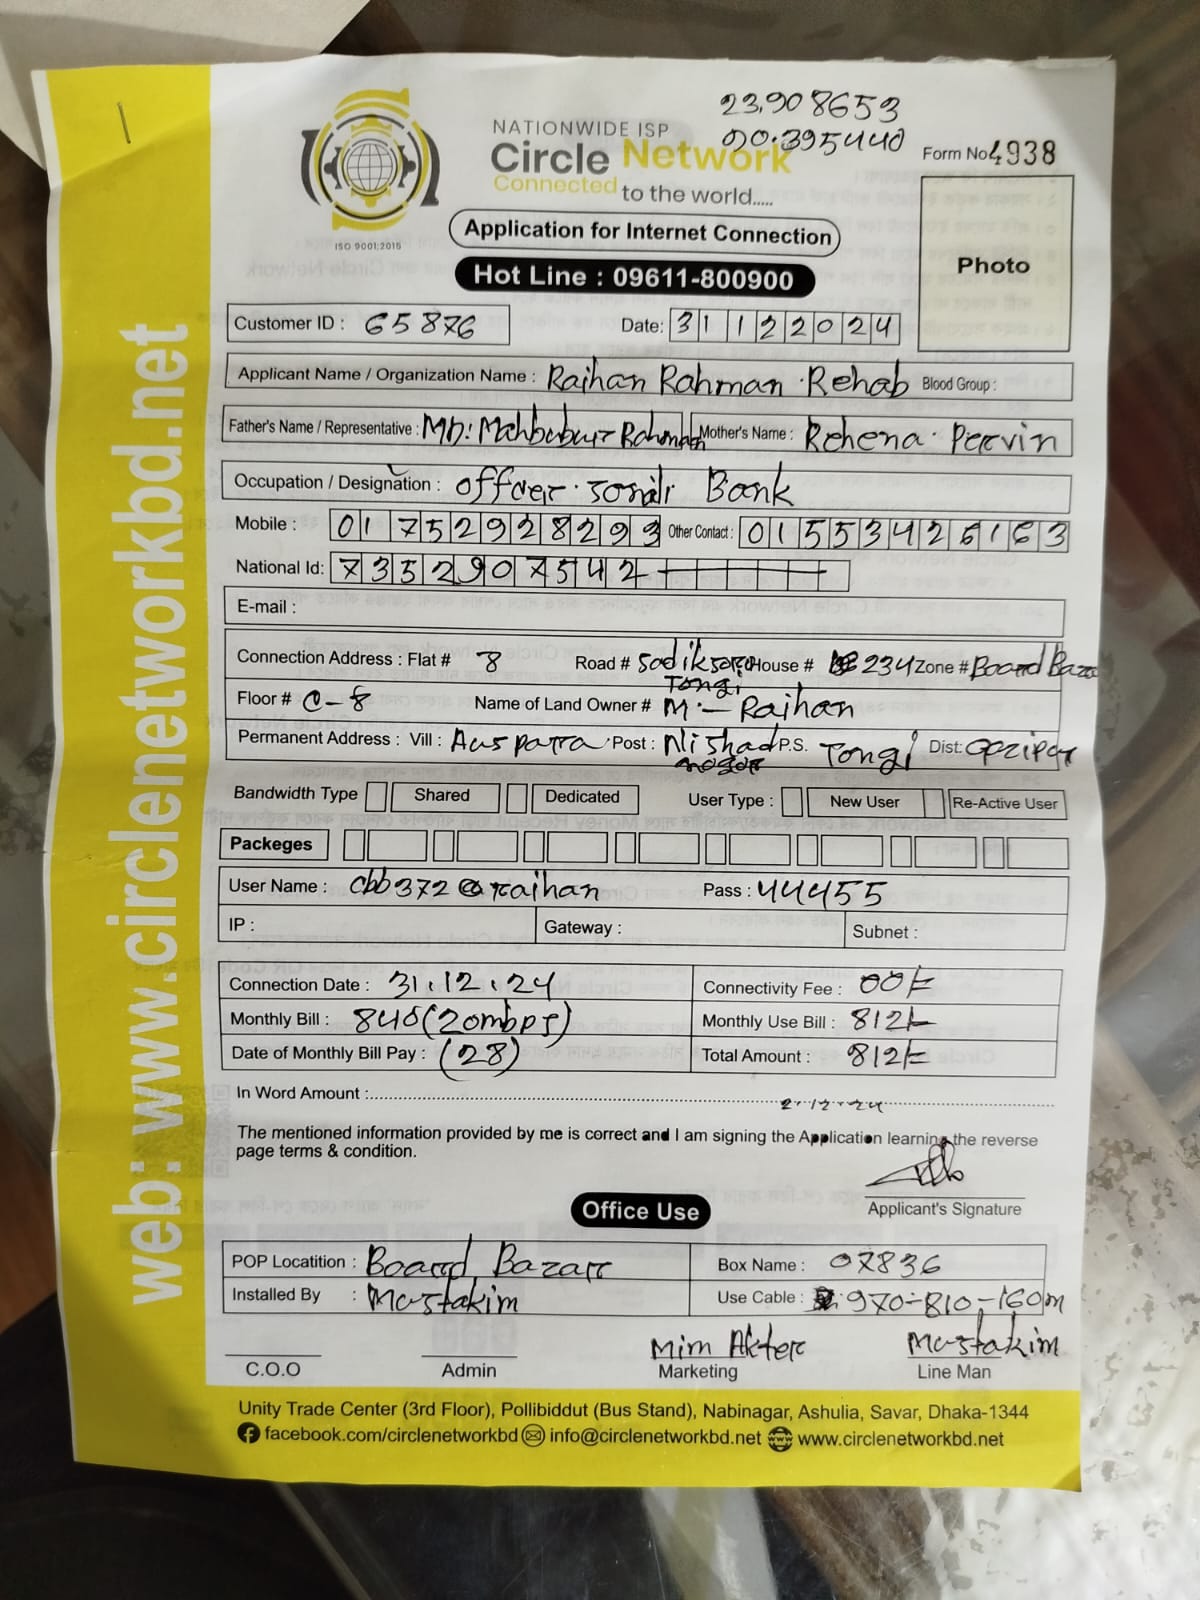 23.908653
90.395440
NATIONWIDE ISP
Circle Network
Connected to the world.....
Form No 4938
ISO 9001:2015
Application for Internet Connection
Photo
Hot Line : 09611-800900
Customer ID : 65876 Date: 31122024
Applicant Name / Organization Name : Raihan Rahman Rehab Blood Group :
Father's Name / Representative : MD: Mahbubur Rahman Mother's Name : Rehena Pervin
Occupation / Designation : officer Sonali Bank
Mobile : 01752928293 Other Contact : 01553426163
National Id: 7352907542
E-mail :
Connection Address : Flat # 8 Road # House # 234 Zone # Board Bazar
Tongi
Floor # C-8 Name of Land Owner # M:- Raihan
Permanent Address : Vill : Auspara Post : Nishad P.S. Tongi Dist: Gazipur
nagar
Bandwidth Type Shared Dedicated User Type : New User Re-Active User
Packeges
User Name : cbb372@raihan Pass : 44455
IP : Gateway : Subnet :
Connection Date : 31.12.24 Connectivity Fee : 00/=
Monthly Bill : 840(20mbps) Monthly Use Bill : 812/=
Date of Monthly Bill Pay : (28) Total Amount : 812/=
In Word Amount :
2.12.24
The mentioned information provided by me is correct and I am signing the Application learning the reverse
page terms & condition.
Applicant's Signature
Office Use
POP Locatition : Board Bazar Box Name : 07836
Installed By : Mustakim Use Cable : 970-810-160m
Mim Akter Mustakim
C.O.O Admin Marketing Line Man
Unity Trade Center (3rd Floor), Pollibiddut (Bus Stand), Nabinagar, Ashulia, Savar, Dhaka-1344
facebook.com/circlenetworkbd info@circlenetworkbd.net www.circlenetworkbd.net
web: www.circlenetworkbd.net